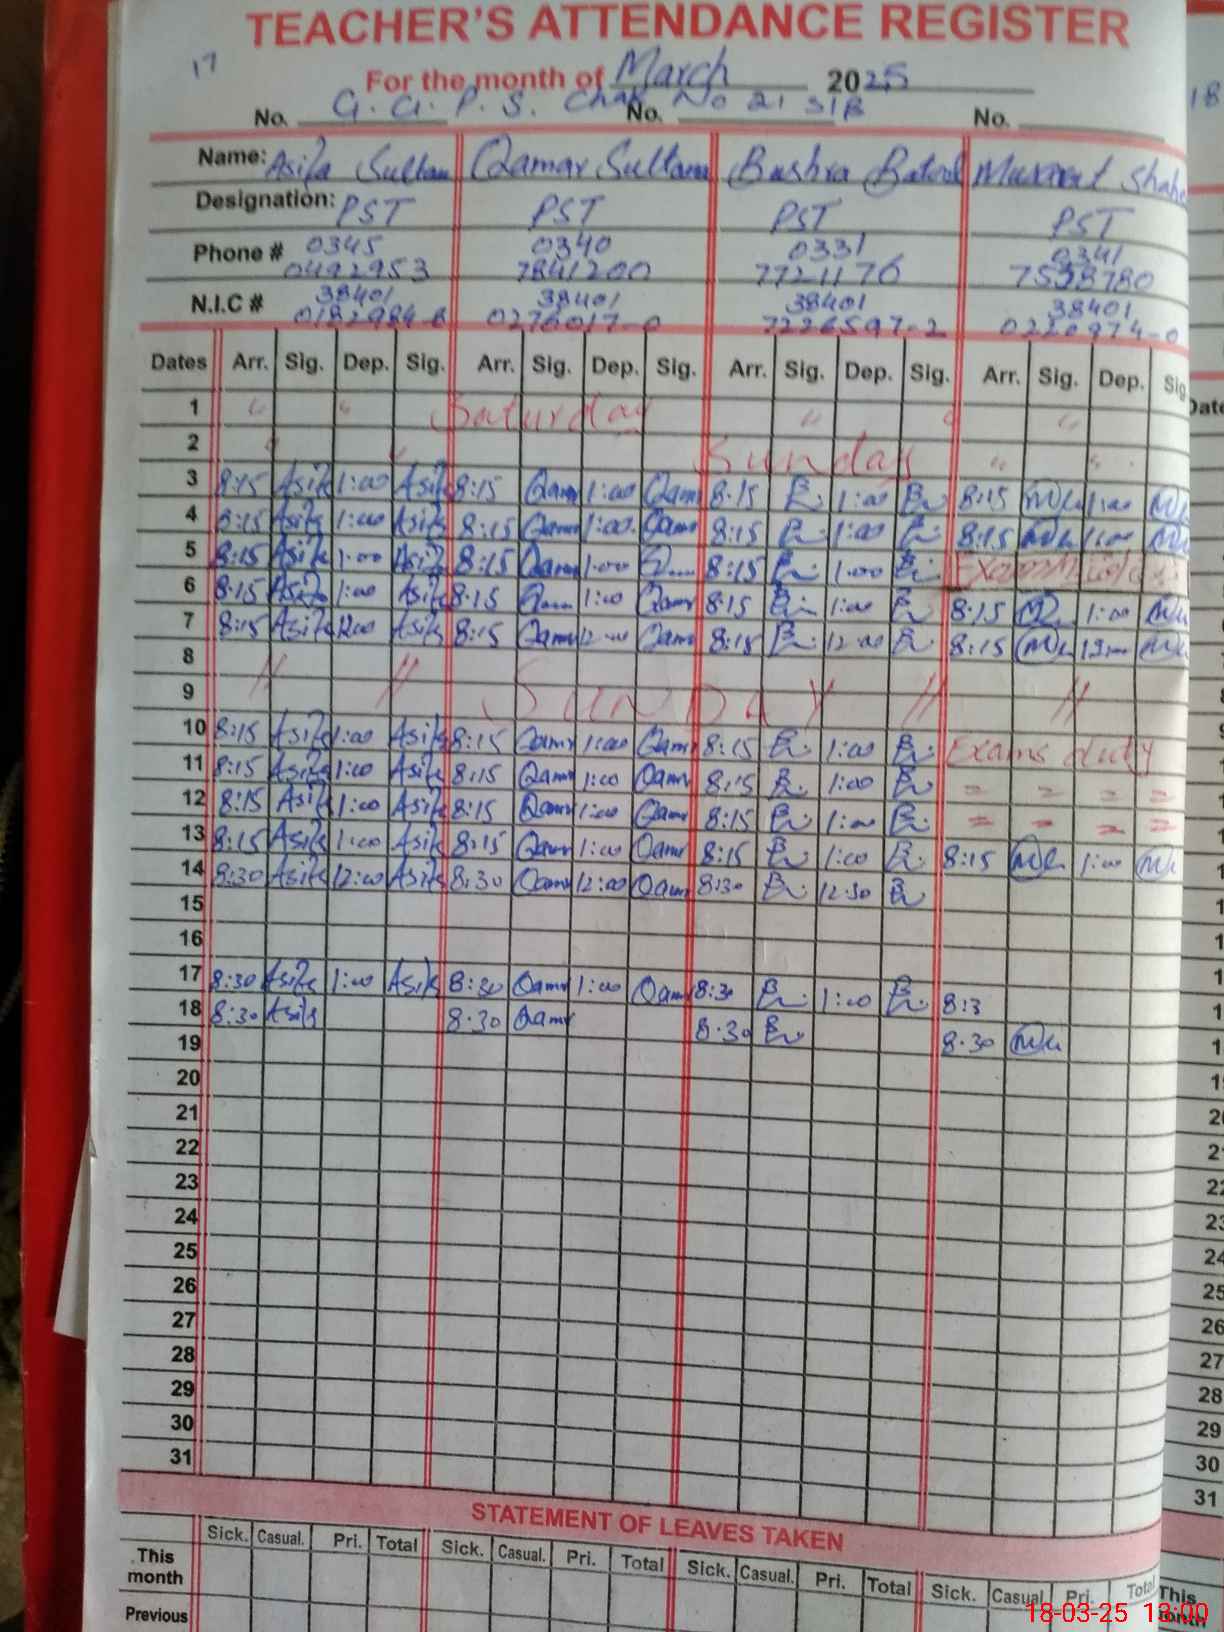 TEACHER'S ATTENDANCE REGISTER
17
For the month of March 2025
No. G. G. P. S. Chak No 21 SB No. No.
18
Name: Asifa Sultan Qamar Sultana Bushra Batool Musarrat Shahe
Designation: PST PST PST PST
Phone # 0345 0340 0331 0341
0492953 7841200 7721176 7538780
N.I.C # 38401 38401 38401 38401
0182984-8 0276017-0 7226597-2 0220974-0
Dates Arr. Sig. Dep. Sig. Arr. Sig. Dep. Sig. Arr. Sig. Dep. Sig. Arr. Sig. Dep. Sig
1 " " Saturday " " "
2 " " Sunday " "
3 8:15 Asifa 1:00 Asifa 8:15 Qamr 1:00 Qamr 8:15 1:00 8:15 1:00
4 8:15 Asifa 1:00 Asifa 8:15 Qamr 1:00 Qamr 8:15 1:00 8:15 1:00
5 8:15 Asifa 1:00 Asifa 8:15 Qamr 1:00 8:15 1:00
6 8:15 Asifa 1:00 Asifa 8:15 Qamr 1:00 Qamr 8:15 1:00 8:15 1:00
7 8:15 Asifa 12:00 Asifa 8:15 Qamr 12:00 Qamr 8:15 12:00 8:15 12:00
8
9 " " SUNDAY " "
10 8:15 Asifa 1:00 Asifa 8:15 Qamr 1:00 Qamr 8:15 1:00 Exams duty
11 8:15 Asifa 1:00 Asifa 8:15 Qamr 1:00 Qamr 8:15 1:00 = = = =
12 8:15 Asifa 1:00 Asifa 8:15 Qamr 1:00 Qamr 8:15 1:00 = = = =
13 8:15 Asifa 1:00 Asifa 8:15 Qamr 1:00 Qamr 8:15 1:00 8:15 1:00
14 8:30 Asifa 12:00 Asifa 8:30 Qamr 12:00 Qamr 8:30 12:30
15
16
17 8:30 Asifa 1:00 Asifa 8:30 Qamr 1:00 Qamr 8:30 1:00 8:3
18 8:30 Asifa 8:30 Qamr 8:30 8:30
19
20
21
22
23
24
25
26
27
28
29
30
31
STATEMENT OF LEAVES TAKEN
Sick. Casual. Pri. Total Sick. Casual. Pri. Total Sick. Casual. Pri. Total Sick. Casual Pri. Total
This month
Previous
This
18-03-25 13:00